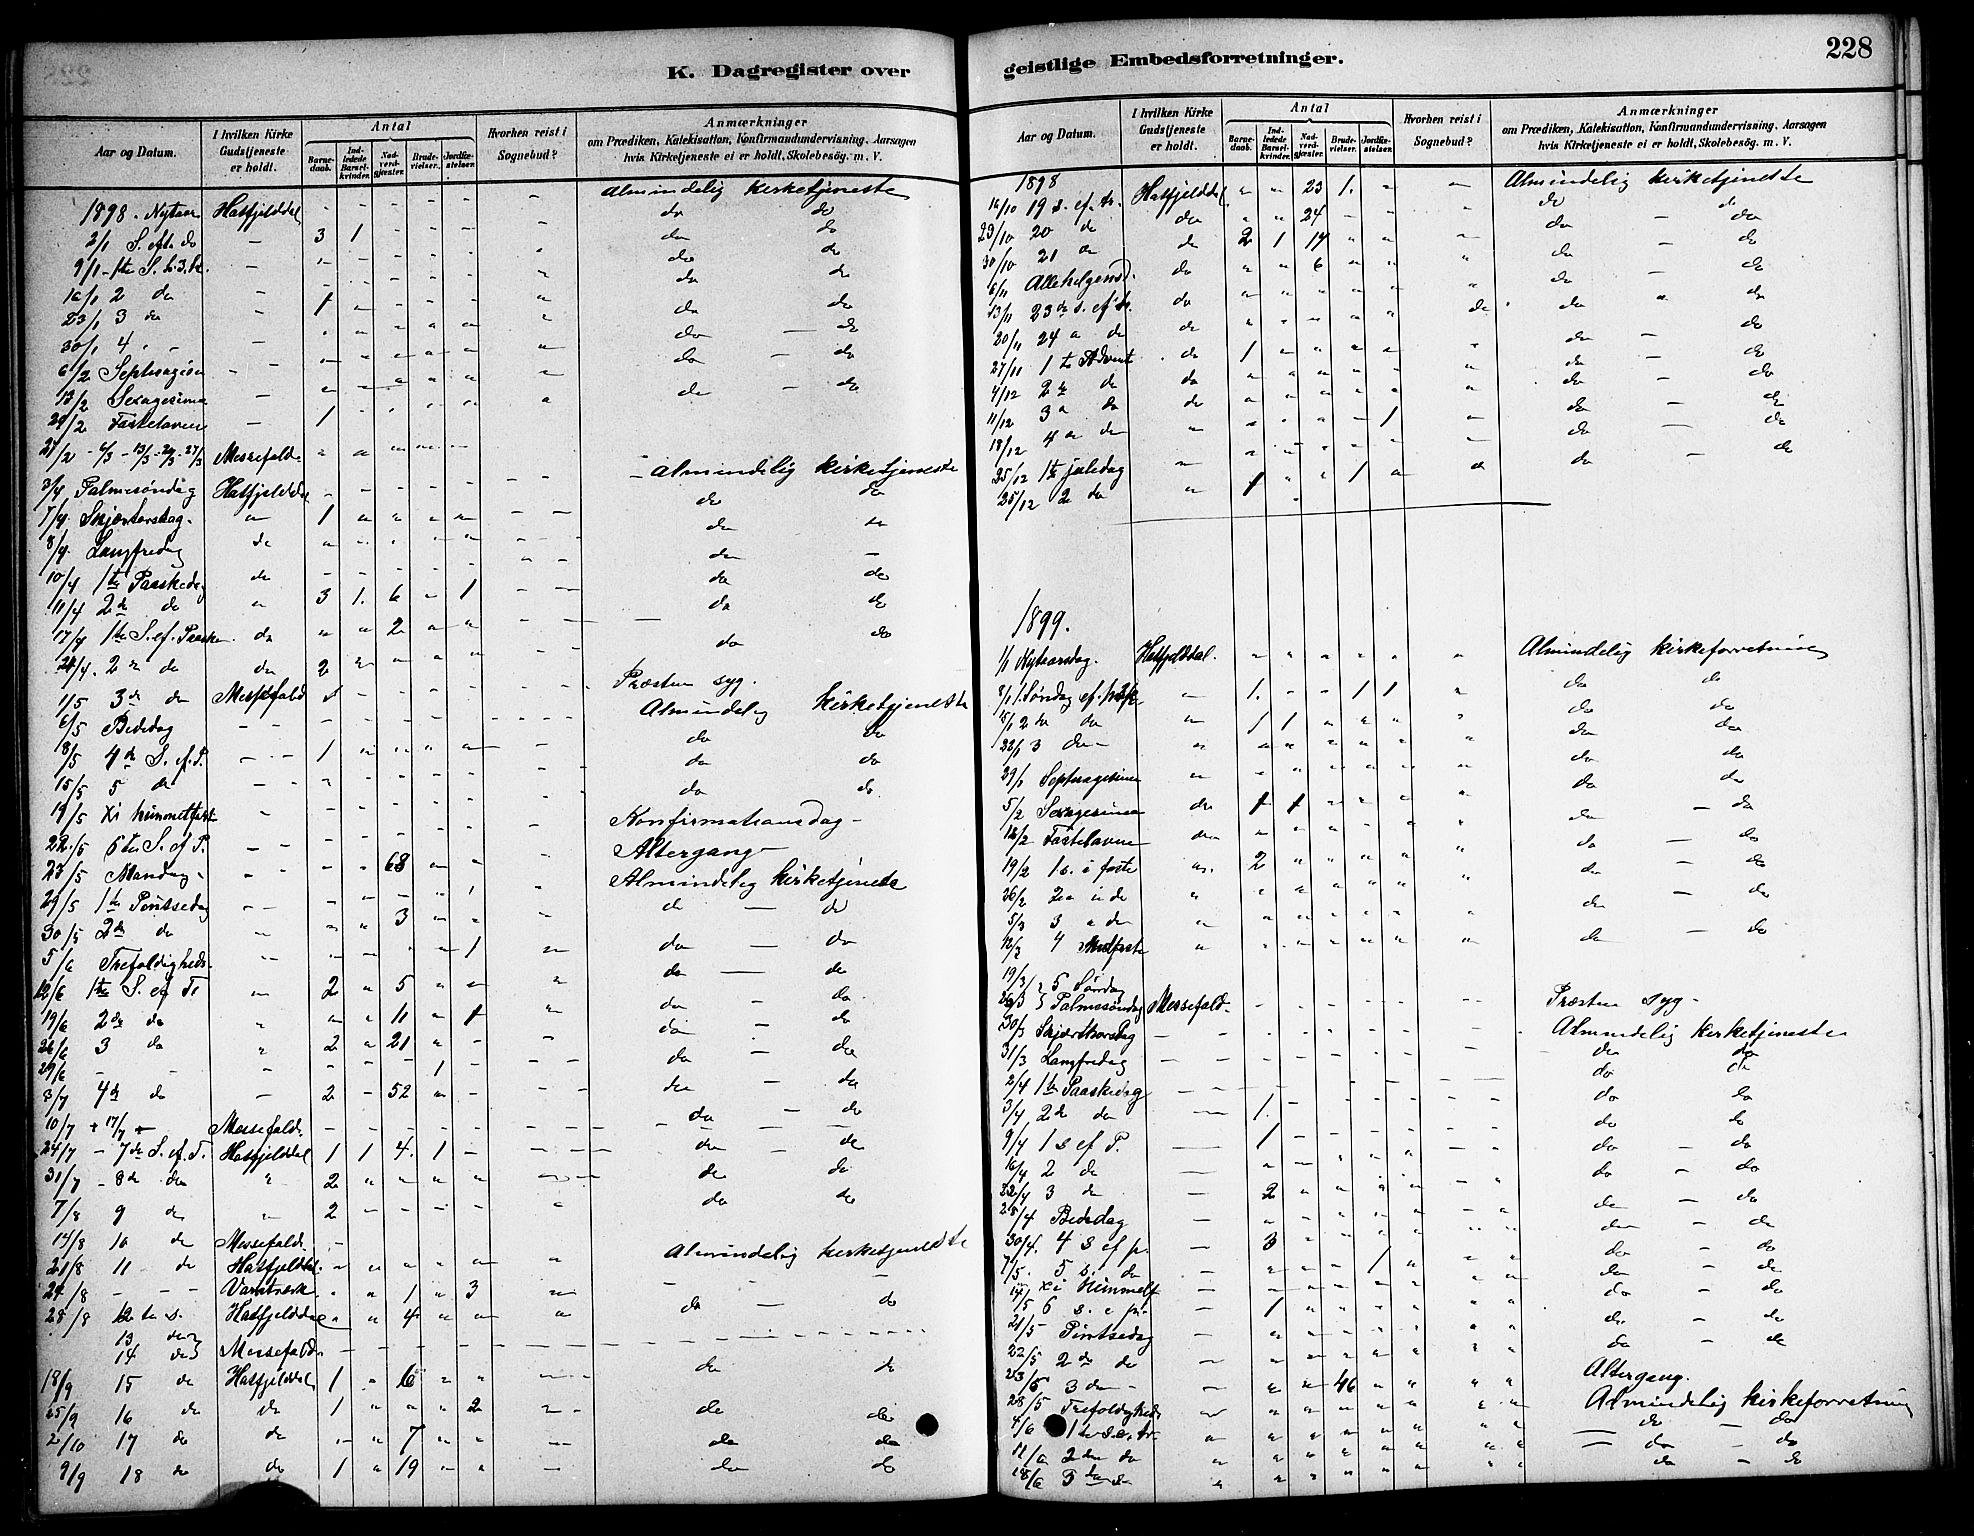 K. Dagregister over
Aar og Datum.
I hvilken Kirke Gudstjeneste er holdt.
Antal
Barnedaab.
Indledede Barselkvinder.
Nadverdgjæster.
Brudevielser.
Jordfæstelser.
Hvorhen reist i Sognebud?
Anmærkninger
om Prædiken, Katekisation, Konfirmandundervisning, Aarsagen
hvis Kirketjeneste ei er holdt, Skolebesög. m. V.
1898. Nytaar Hatfjelddal - - - - - - Almindelig kirketjeneste
2/1 S. eft. do - 3 1 - - - - do do
9/1 - 1te S. h. 3. k. - do do
16/1 2 do - 1 do do
23/1 3 do - do do
30/1 4 - - do do
6/2 Septuagesi - do - do
13/2 Sexagesima - do - do
20/2 Fastelaven - 1 do - do
27/2 - 6/3 - 13/3 - 20/3 - 27/3 Messefald
3/4 Palmesøndag Hatfjelddal - - - - - Almindelig kirketjeneste
7/4 Skjærtorsdag - 1 do do
8/4 Langfredag do
10/4 1te Paaskedag do
11/4 2de do 3 1 6 - 1 do do
17/4 1te S. ef. Paaske do 2 do do
24/4 2 do do 2 do do
1/5 3de do Messefald Præsten syg.
6/5 Bededag Almindelig kirketjeneste
8/5 4de S. ef. P. 1 do do
15/5 5 do do do
19/5 Xi himmelfart do do
22/5 6te S. ef P. Konfirmationsdag -
23/5 Mandag - 68 Altergang -
29/5 1te Pintsedag Almindelig kirketjeneste
30/5 2de do 3 do - do
5/6 Trefoldigheds. 1 do - do
12/6 1te S. ef Tr 2 5 do - do
19/6 2de do 11 1 do - do
26/6 3 do 2 21 do - do
29/6 - - 1 do - do
3/7 4de do 2 - 52 do - do
10/7 + 17/7 - Messefald.
24/7 - 7de S. ef. T. Hatfjelddal 1 1 4 1 do do
31/7 - 8de do 2 do do
7/8 9 do 2 do do
14/8 10 do Messefald.
21/8 11 do Hatfjelddal Almindelig kirketjeneste
24/8 - - - 1 3
28/8 12te s. Hatfjelddal 4 do - do
13 do
14 do Messefald
18/9 15 do Hatfjelddal 1 6 do do
25/9 16 do do 1 2 do do
2/10 17 do do 7 do do
9/9 18 do do 1 19 do do
geistlige Embedsforretninger.
228
Aar og Datum.
I hvilken Kirke Gudstjeneste er holdt.
Antal
Barnedaab.
Indledede Barselkvinder.
Nadverdgjæster.
Brudevielser.
Jordfæstelser.
Hvorhen reist i Sognebud?
Anmærkninger
om Prædiken, Katekisation, Konfirmandundervisning, Aarsagen
hvis Kirketjeneste ei er holdt, Skolebesög. m. V.
1898
16/10 19 s. ef. tr. Hatfjelddal 23 1. Almindelig kirketjeneste
23/10 20 do do 24 do do
30/10 21 do 2 1 14 do - do
6/11 Allehelgensd. do 6 do - do
13/11 23de s. ef tr. do do - do
20/11 24 do do do do
27/11 1te Advent do 1 do - do
4/12 2de do do do - do
11/12 3 do do do - do
18/12 4 do 1 do - do
25/12 1te juledag do - do
26/12 2 do 1 1 do - do
1899.
1/1 Nytaarsdag. Hatfjelddal. Almindelig kirkeforretning
8/1 1. Søndag ef. 1. 1 1 do do
15/1 2 do do 1 1 do do
22/1 3 do - do do
29/1 Septuagesima do do
5/2 Sexagesima do 1 1 do do
12/2 Fastelaven do do - do
19/2 1 s. i faste 2 do - do
26/2 2 do do - do
5/3 3 do do - do
12/3 4 Midfaste do - do
19/3 5 Søndag
26/3 Palmesøndag Messefald - Præsten syg -
30/3 Skjærthorsdag Almindelig kirketjeneste
31/3 Langfredag do do
2/4 1te Paaskedag do do
3/4 2de do 1. do do
9/4 1 s ef P. 1 do do
16/4 2 do do - do
23/4 3 do 2 do - do
28/4 Bededag do - do
30/4 4 s ef p. 3 do - do
7/5 5 s. do 1 do - do
11/5 Xi Himmelf do - do
6 s. e p. 1 do - do
21/5 Pintsedag do - do
22/5 2de do do - do
23/5 3 do - 46 Altergang.
28/5 Trefoldigheds Almindelig kirkeforretning
4/6 1te s. e. tr. do - do
11/6 2den do do - do
18/6 3 do do - do